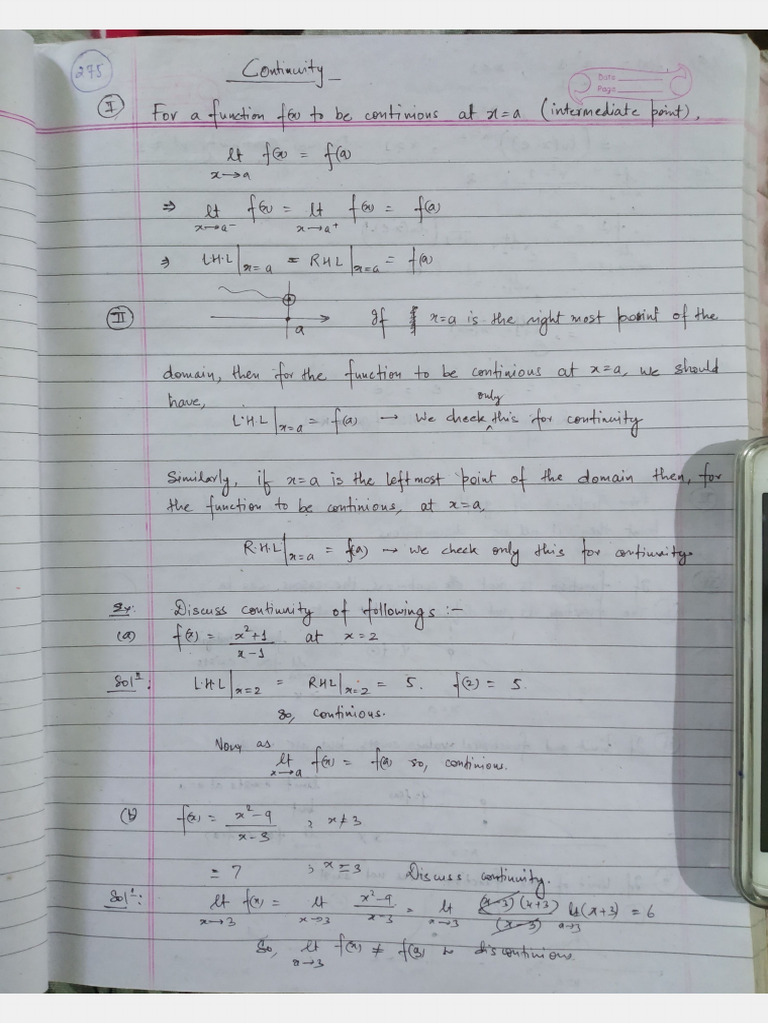 275
Continuity
Date
Page
II For a function f(x) to be continious at x=a (intermediate point),
lt x→a f(x) = f(a)
⇒ lt x→a⁻ f(x) = lt x→a⁺ f(x) = f(a)
⇒ L.H.L|x=a = R.H.L|x=a = f(a)
a
III If x=a is the right most point of the
domain, then for the function to be continious at x=a, we should
have,
L.H.L|x=a = f(a) → We check only this for continuity
Similarly, if x=a is the left most point of the domain then, for
the function to be continious, at x=a,
R.H.L|x=a = f(a) → We check only this for continuity.
Ex: Discuss continuity of followings :-
(a) f(x) = (x²+1)/(x-1) at x=2
Solⁿ: L.H.L|x=2 = R.H.L|x=2 = 5. f(2) = 5.
so, continious.
Now as
lt x→a f(x) = f(a) so, continious.
(b) f(x) = (x²-9)/(x-3) ; x≠3
= 7 ; x=3 Discuss continuity.
Solⁿ: lt x→3 f(x) = lt x→3 (x²-9)/(x-3) = lt x→3 (x-3)(x+3)/(x-3) lt x→3 (x+3) = 6
So, lt x→3 f(x) ≠ f(3) discontinious.